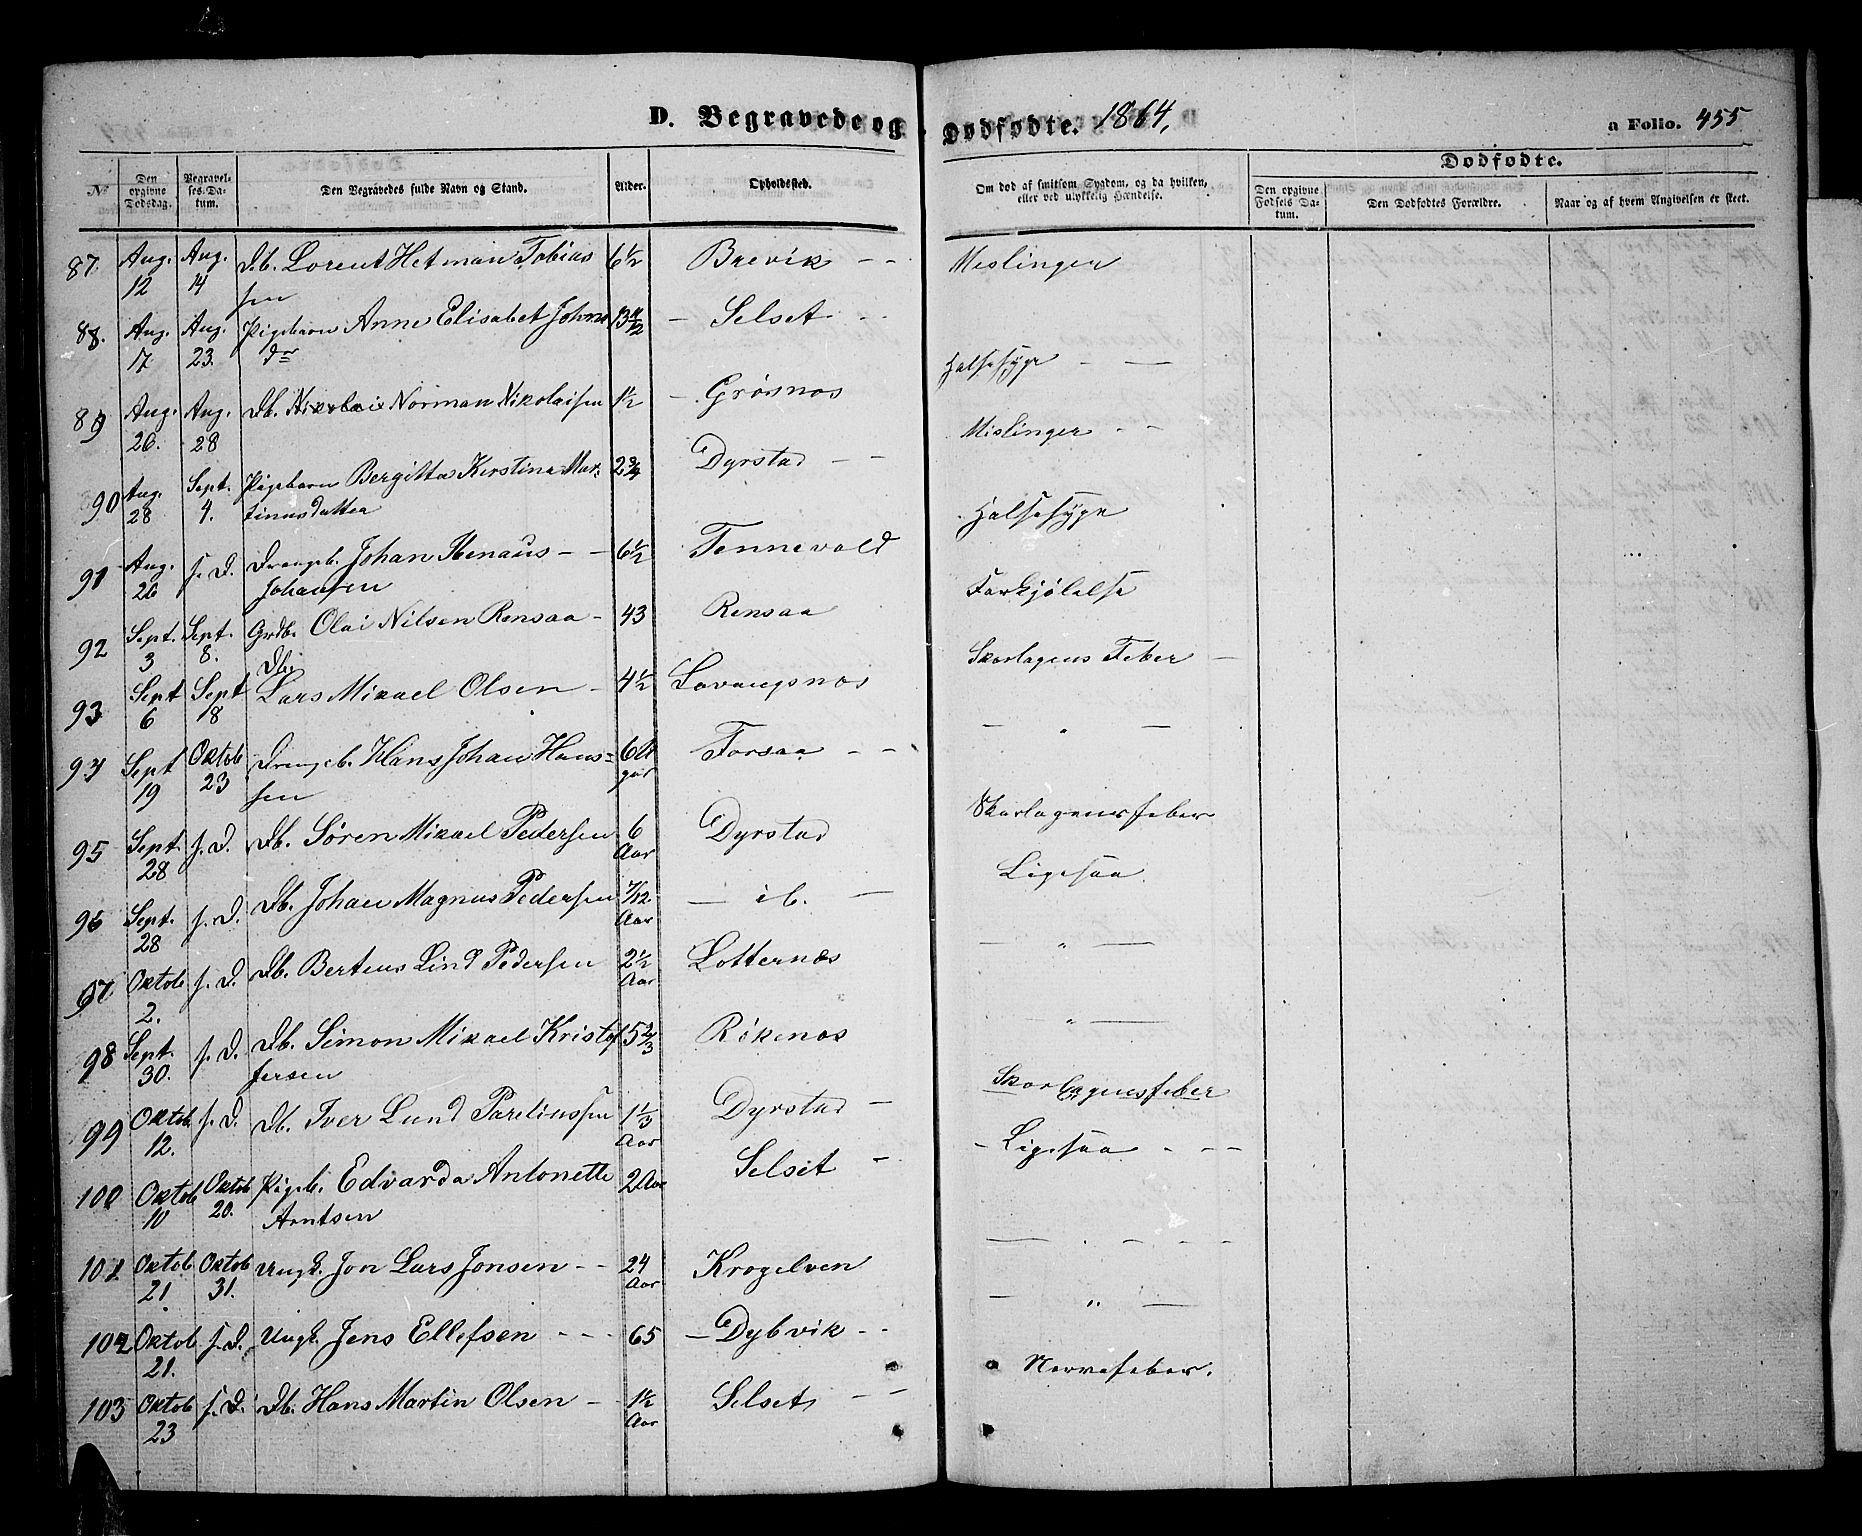 D. Begravede og Dødfødte. 1864, a Folio. 455
Dødfødte.
№ Den opgivne Dødsdag. Begravelses-Datum. Den Begravedes fulde Navn og Stand. Alder. Opholdssted. Om død af smitsom Sygdom, og da hvilken, eller ved ulykkelig Hændelse. Den opgivne Fødsels Datum. Den Dødfødtes Forældre. Naar og af hvem Angivelsen er skeet.
87. Aug. 12 Aug. 14 Db. Lorent Hetman Tobias 6½ Brevik - - Meslinger
sen
88. Aug. 17. Aug. 23. Pigebarn Anne Elisabet Johns 13 - Selset - -
dr Halsesyge - -
89 Aug. 26. Aug. 28 Db. Nikolai Norman Nikolaisen 1½ - Grøsnæs Mislinger - -
90 Aug. 28 Sept. 4. Pigebarn Bergitta Kirstina Mar- 2¾ Dyrstad - -
tinusdatter Halsesyge
91 Aug. 26 s. D. Drengeb. Johan Benaus - - 6½ Tennevold
Johansen Forkjølelse
92 Sept. 3 Sept. 8. Grdb. Olai Nilsen Rensaa - 43 Rensaa
Db. Skarlagens Feber -
93 Sept 6 Sept 18 Lars Mikael Olsen - 4½ Lavangsnæs - " -
94 Sept 19 Oktob 23 Drengeb. Hans Johan Hans- 6 Forsaa - -
sen Skarlagensfeber
95 Sept. 28 s. D. Db. Søren Mikael Pedersen 6 Aar Dyrstad Ligesaa
96 Sept. 28 s. D. Db. Johan Magnus Pedersen 7/12. Aar - ib. - - " -
97 Oktob 2. s. D. Db. Berteus Lind Pedersen 2½ Aar Lotternæs " -
98 Sept. 30. s. D. Db. Simon Mikael Kristof 5⅔ Røkenæs
fersen Skarlagensfeber
99 Oktob 12. s. D. Db. Iver Lund Pareliussen 1⅓ Aar Dyrstad - - Ligesaa - - -
100 Oktob 10 Oktob 20. Pigeb. Edvarda Antonette 2 Aar Selset -
Arntsen - - - -
101 Oktob 21 Oktob 31. Ungk. Jon Lars Jonsen - - 24 Aar Krogelven - " -
102 Oktob 21. s. D. Ungk. Jens Ellefsen - - - 65 - Dybvik - - Nervefeber.
103 Oktob 23 s. D. Db. Hans Martin Olsen - 1½ Aar Selset - -